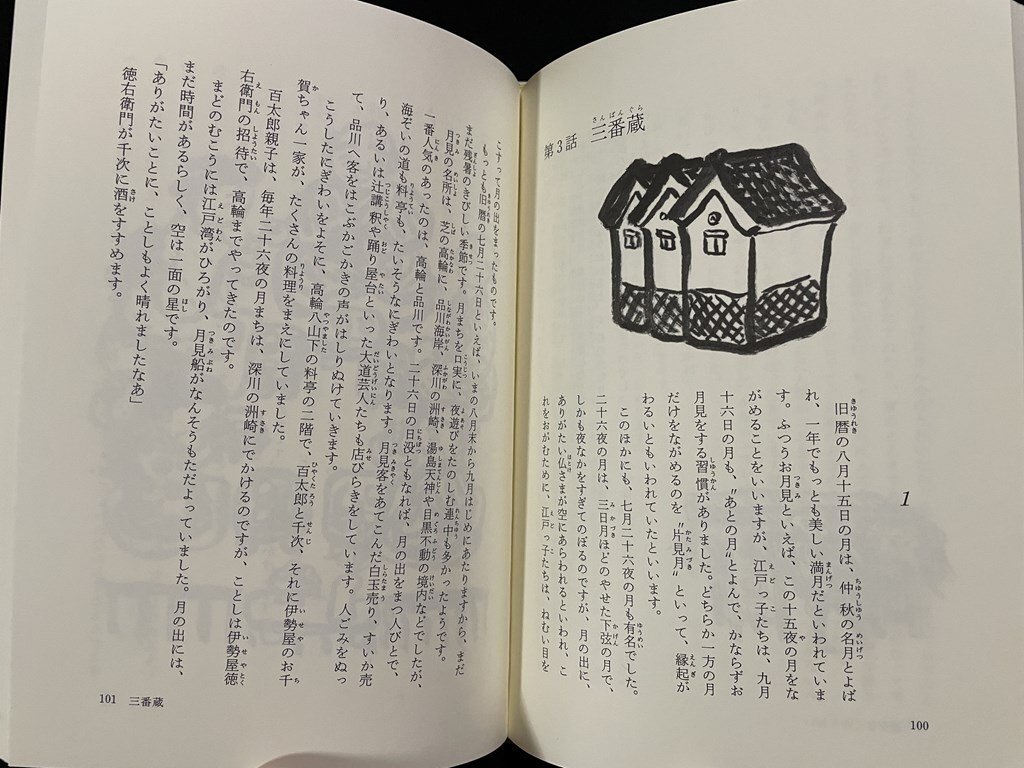 第3話 三番蔵
1
旧暦の八月十五日の月は、仲秋の名月とよば
れ、一年でもっとも美しい満月だといわれていま
す。ふつうお月見といえば、この十五夜の月をな
がめることをいいますが、江戸っ子たちは、九月
十六日の月も、〝あとの月〟とよんで、かならずお
月見をする習慣がありました。どちらか一方の月
だけをながめるのを〝片見月〟といって、縁起が
わるいともいわれていたといいます。
このほかにも、七月二十六夜の月も有名でした。
二十六夜の月は、三日月ほどのやせた下弦の月で、
しかも夜なかをすぎてのぼるのですが、月の出に、
ありがたい仏さまが空にあらわれるといわれ、こ
れをおがむために、江戸っ子たちは、ねむい目を
100
こすって月の出をまったものです。
もっとも旧暦の七月二十六日といえば、いまの八月末から九月はじめにあたりますから、まだ
まだ残暑のきびしい季節です。月まちを口実に、夜遊びをたのしむ連中も多かったようです。
月見の名所は、芝の高輪に、品川海岸、深川の洲崎、湯島天神や目黒不動の境内などでしたが、
一番人気のあったのは、高輪と品川です。二十六日の日没ともなれば、月の出をまつ人びとで、
海ぞいの道も料亭も、たいそうなにぎわいとなります。月見客をあてこんだ白玉売り、すいか売
り、あるいは辻講釈や踊り屋台といった大道芸人たちも店びらきをしています。人ごみをぬっ
て、品川へ客をはこぶかごかきの声がはしりぬけていきます。
こうしたにぎわいをよそに、高輪八山下の料亭の二階で、百太郎と千次、それに伊勢屋のお千
賀ちゃん一家が、たくさんの料理をまえにしていました。
百太郎親子は、毎年二十六夜の月まちは、深川の洲崎にでかけるのですが、ことしは伊勢屋徳
右衛門の招待で、高輪までやってきたのです。
まどのむこうには江戸湾がひろがり、月見船がなんそうもただよっていました。月の出には、
まだ時間があるらしく、空は一面の星です。
「ありがたいことに、ことしもよく晴れましたなあ」
徳右衛門が千次に酒をすすめます。
101 三番蔵